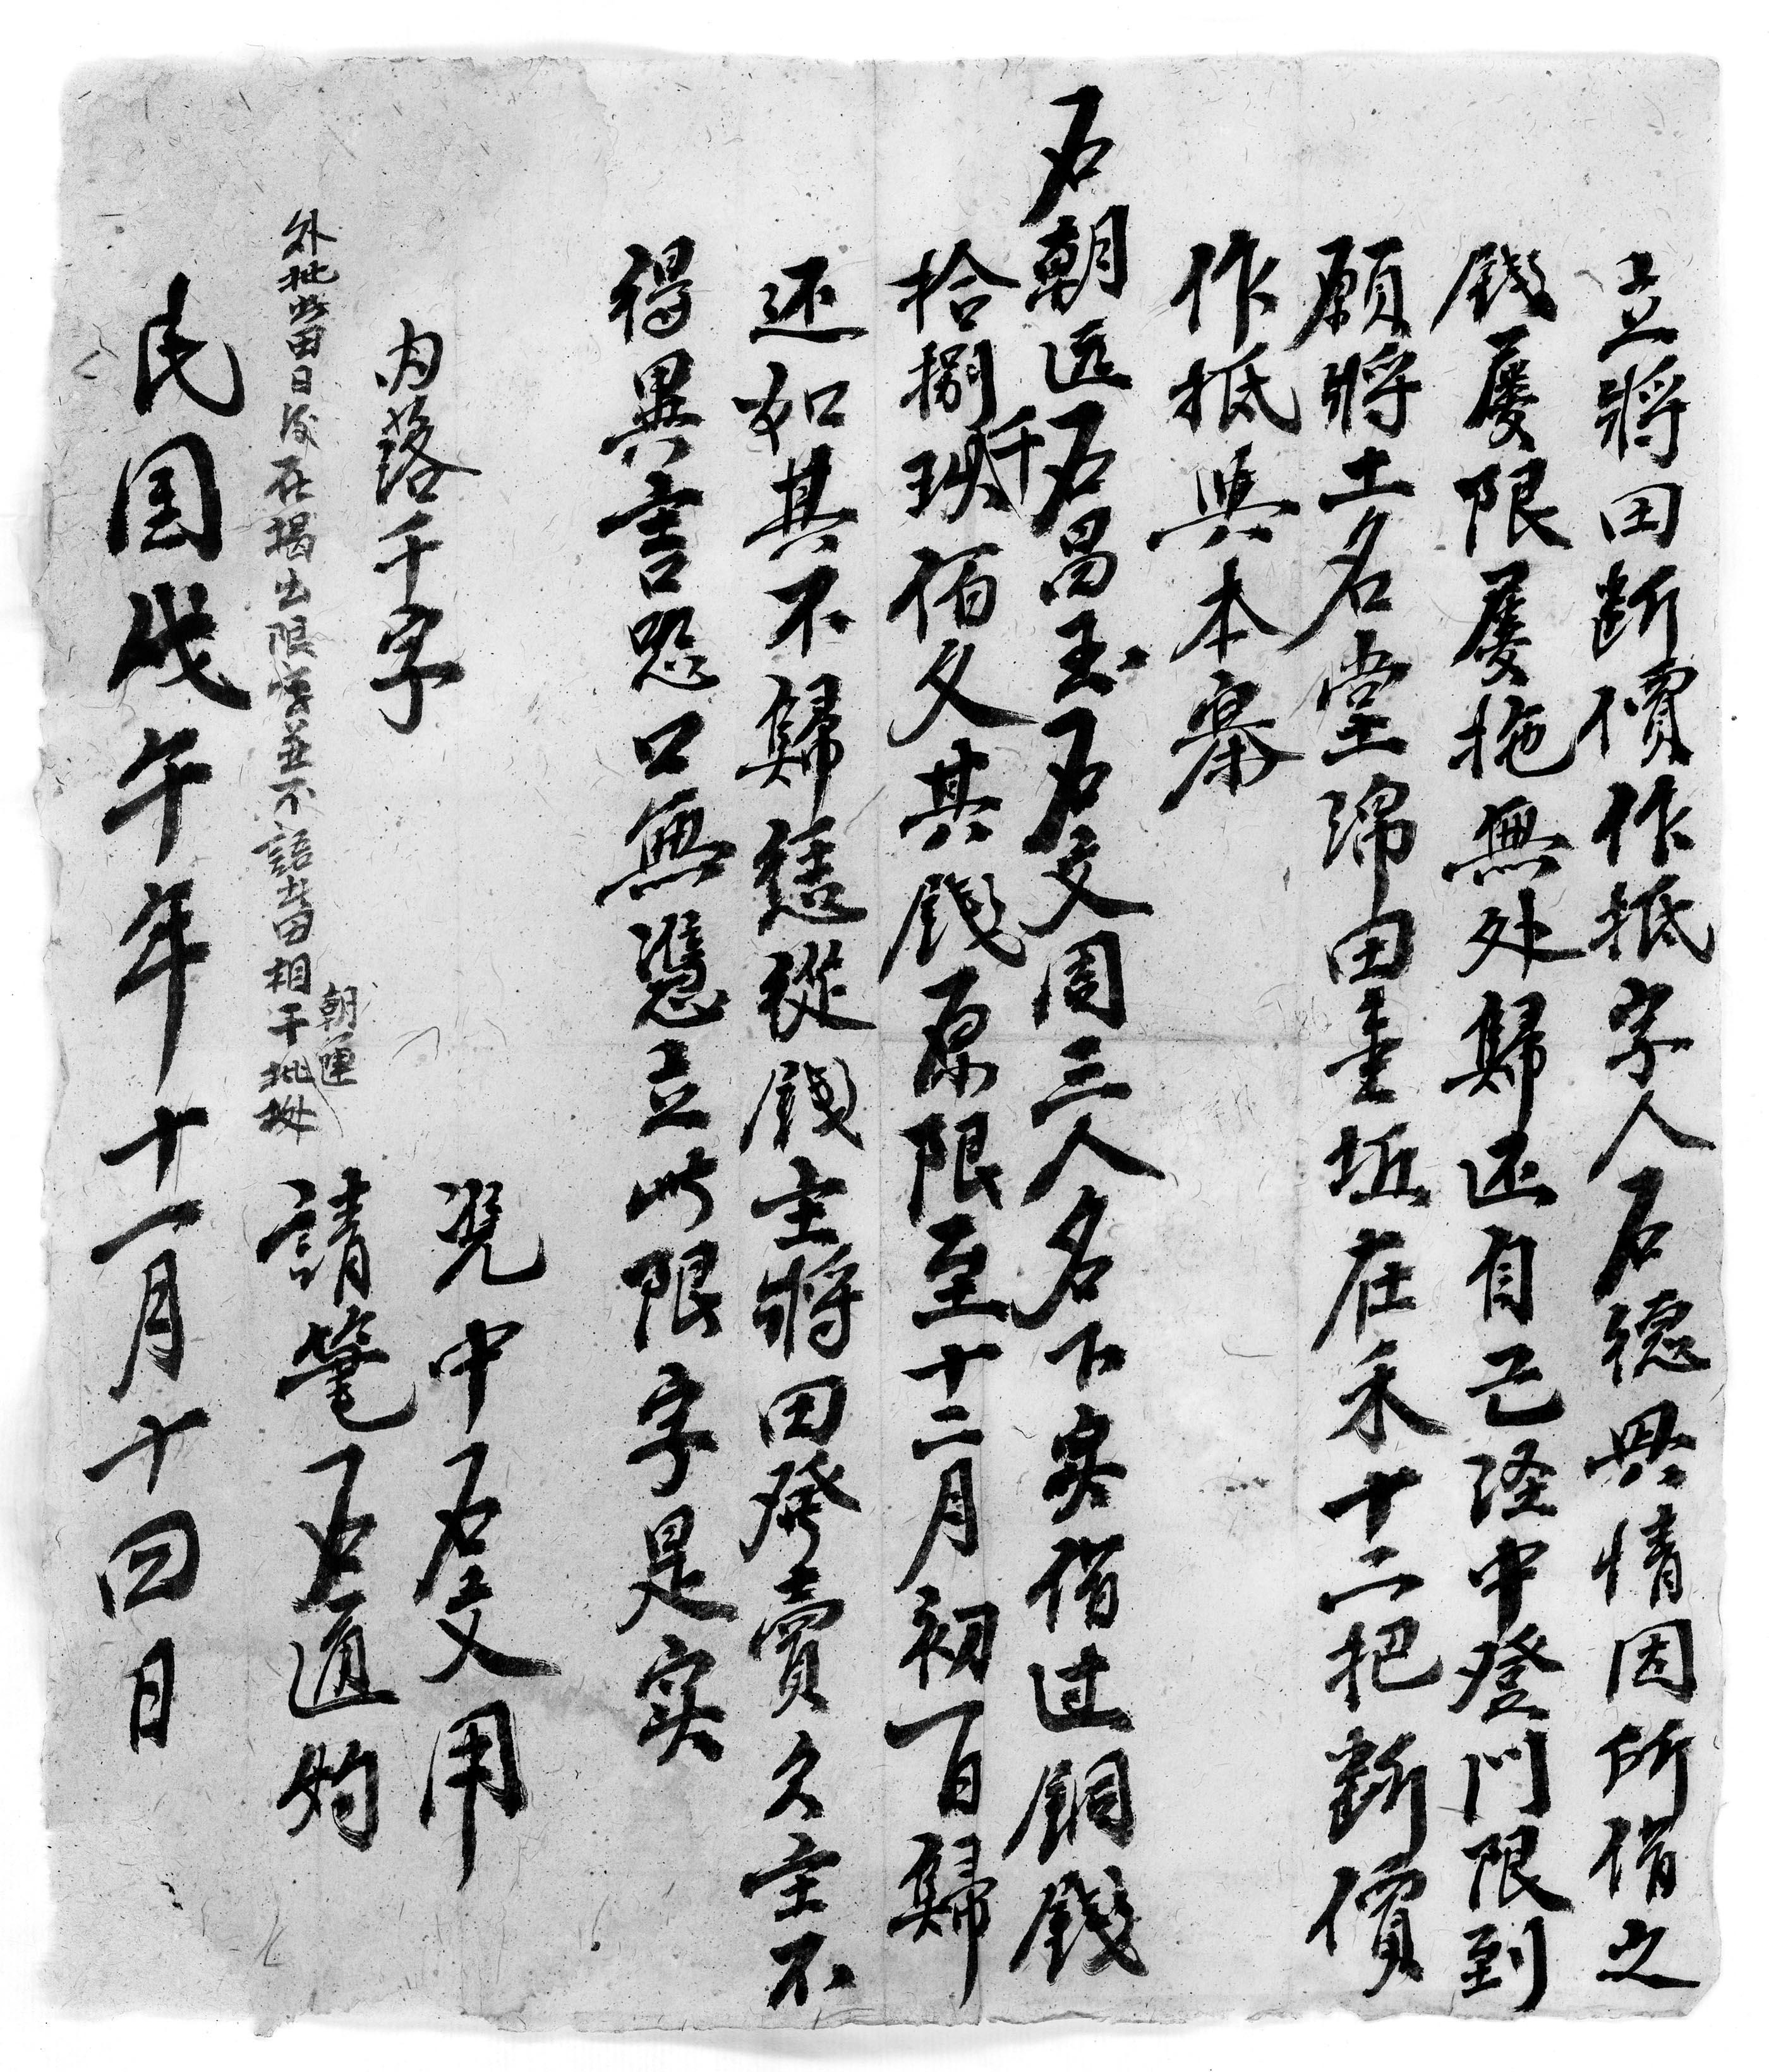 立將田断價作抵字人石德興情因所借之
錢屡限屡拖無处歸还自己经中登門限到
願將土名堂歸田壹坵在禾十二把断價
作抵與本寨
石朝运石昌玉石文周三人名下实借过銅錢
拾捌千玖佰文其錢原限至十二月初一日歸
还如其不歸恁從錢主將田發賣欠主不
得異言恐口無憑立此限字是实
内落千字
凭中石文用
外批此田日後在揭出限字並不語昔田相干批
朝運
請筆石通灼
民国戊午年十一月十四日